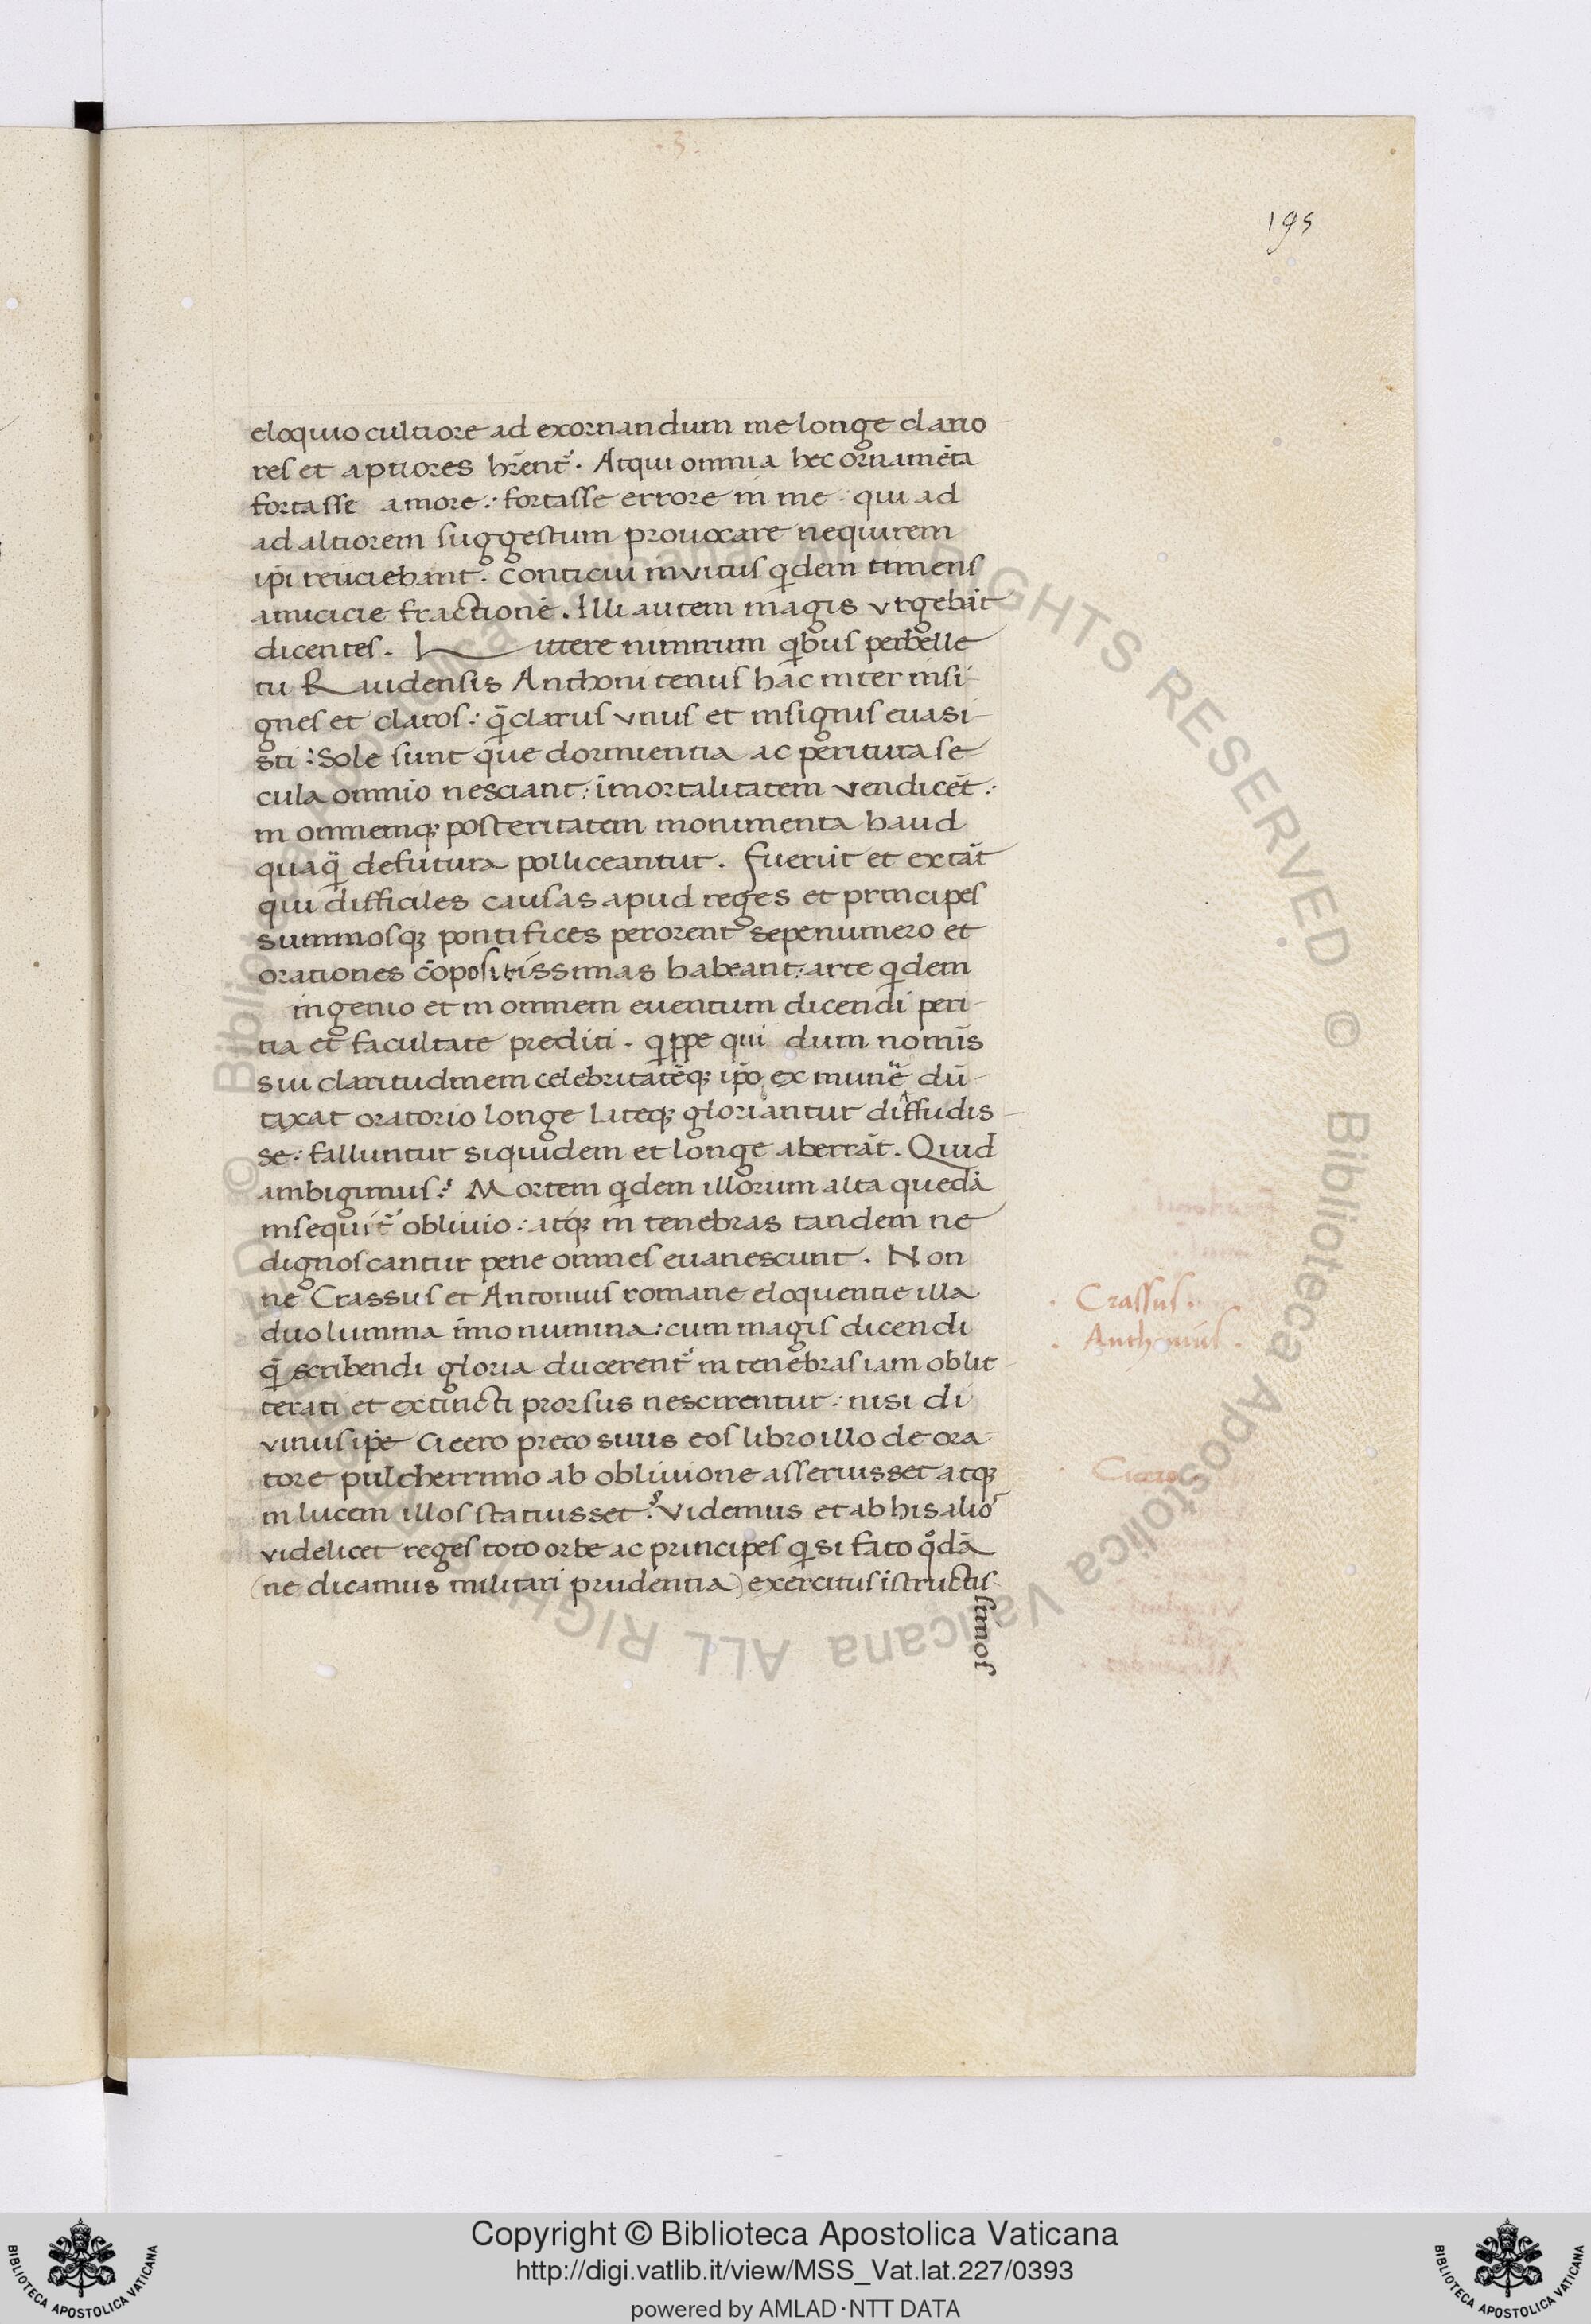 .3.
195
eloquio cultiore ad exornandum me longe clario
res et aptiores hr̄ent᷑. Atqui omnia hec ornamēta
fortasse amore: fortasse errore in me: qui ad
ad altiorem suggestum prouocare nequirem
ip̄i reiiciebant. Conticui invitus qͥdem timens
amicicie fractionē. Illi autem magis vrgebāt
dicentes. L ittere nimirum qͥbus perbelle
tu Raudensis Anthoni tenus hac inter insi-
gnes et claros: q̄ clarus vnus et insignis euasi-
sti: Sole sunt que dormientia ac peritura se-
cula omnio nesciant: īmortalitatem vendicēt:
in omnemqꝫ posteritatem monimenta haud
quaq̄ defutura polliceantur. Fuerūt et extāt
qui difficiles causas apud reges et principes
summosqꝫ pontifices perorent᷑ sepenumero et
orationes cōpositissimas habeant: arte qͥdem
ingenio et in omnem euentum dicendi peri-
tia et facultate prediti. qͥppe qui dum nomīs
sui claritudinem celebritatēqꝫ ip̄o ex munē dū-
taxat oratorio longe lateqꝫ gloriantur diffudis-
se: falluntur siquidem et longe aberrāt. Quid
ambigimus? Mortem qͥdem illorum alta quedā
insequit᷑ obliuio: atqꝫ in tenebras tandem ne
dignoscantur pene omnes euanescunt. Non
ne Crassus et Antonius romane eloquentie illa
duo lumina īmo numina: cum magis dicendi
q̄ scribendi gloria ducerent᷑ in tenebras iam oblit-
terati et extincti prorsus nescirentur: nisi di
vinus ip̄e Cicero preco suus eos libro illo de ora-
tore pulcherrimo ab obliuione asseruisset atqꝫ
in lucem illos statuisset? Videmus et ab his alio
videlicet reges toto orbe ac principes qͣsi fato qͦdā
(ne dicamus militari prudentia) exercitus īstructis-
simos
. Crassus.
. Anthonius.
. Cicero.
Copyright © Biblioteca Apostolica Vaticana
http://digi.vatlib.it/view/MSS_Vat.lat.227/0393
powered by AMLAD·NTT DATA